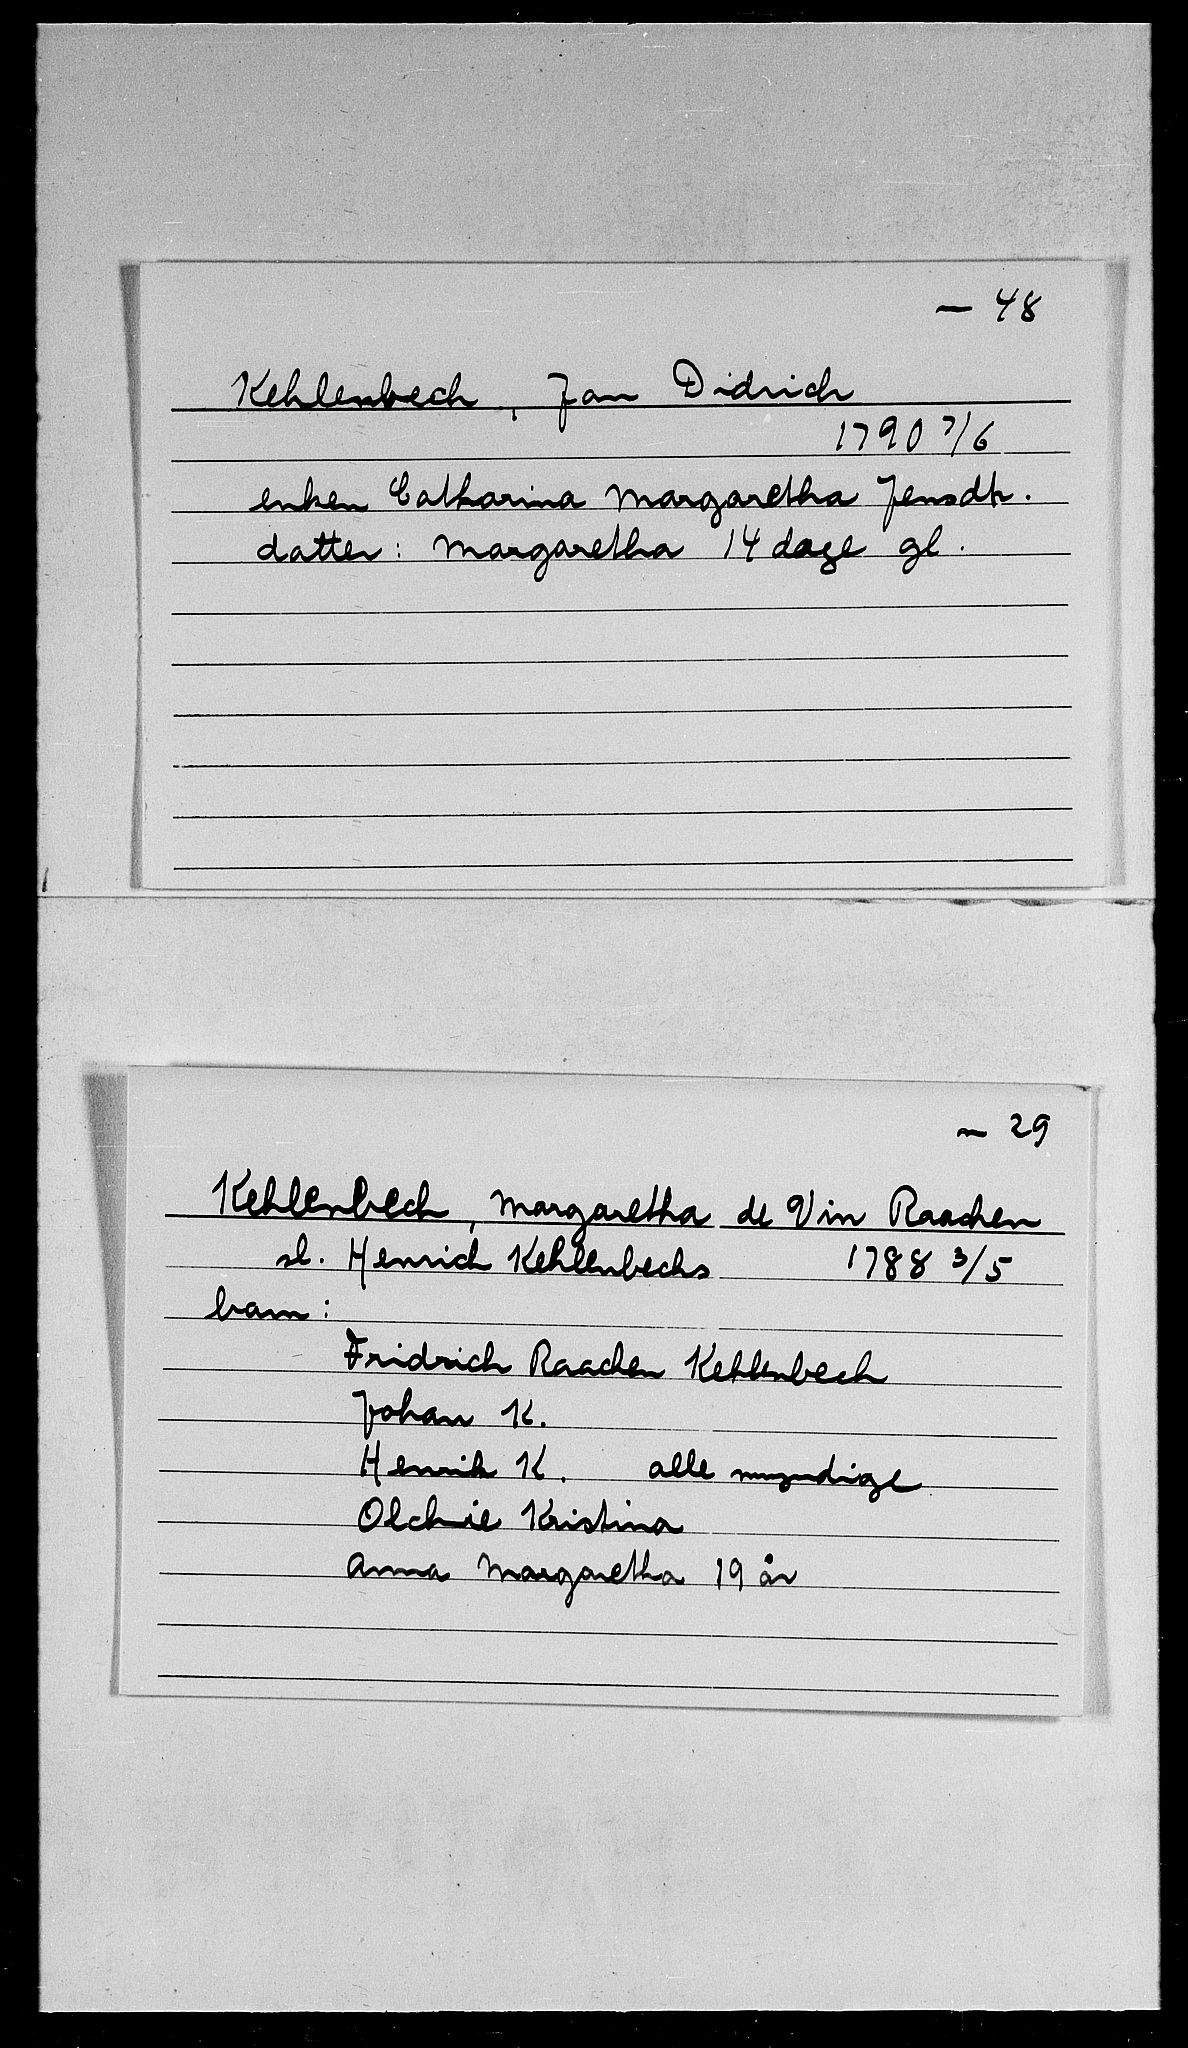 — 48
Kehlenbech, Jan Didrich
1790 7/6
enken Catharina Margaretha Jensdtr.
datter: Margaretha 14 dage gl.
— 29
Kehlenbech, Margaretha de Vin Raachen
sl. Henrich Kehlenbechs 1788 3/5
barn:
Fridrich Raachen Kehlenbech
Johan K.
Henrik K. alle myndige
Olchie Kristina
Anna Margaretha 19 år